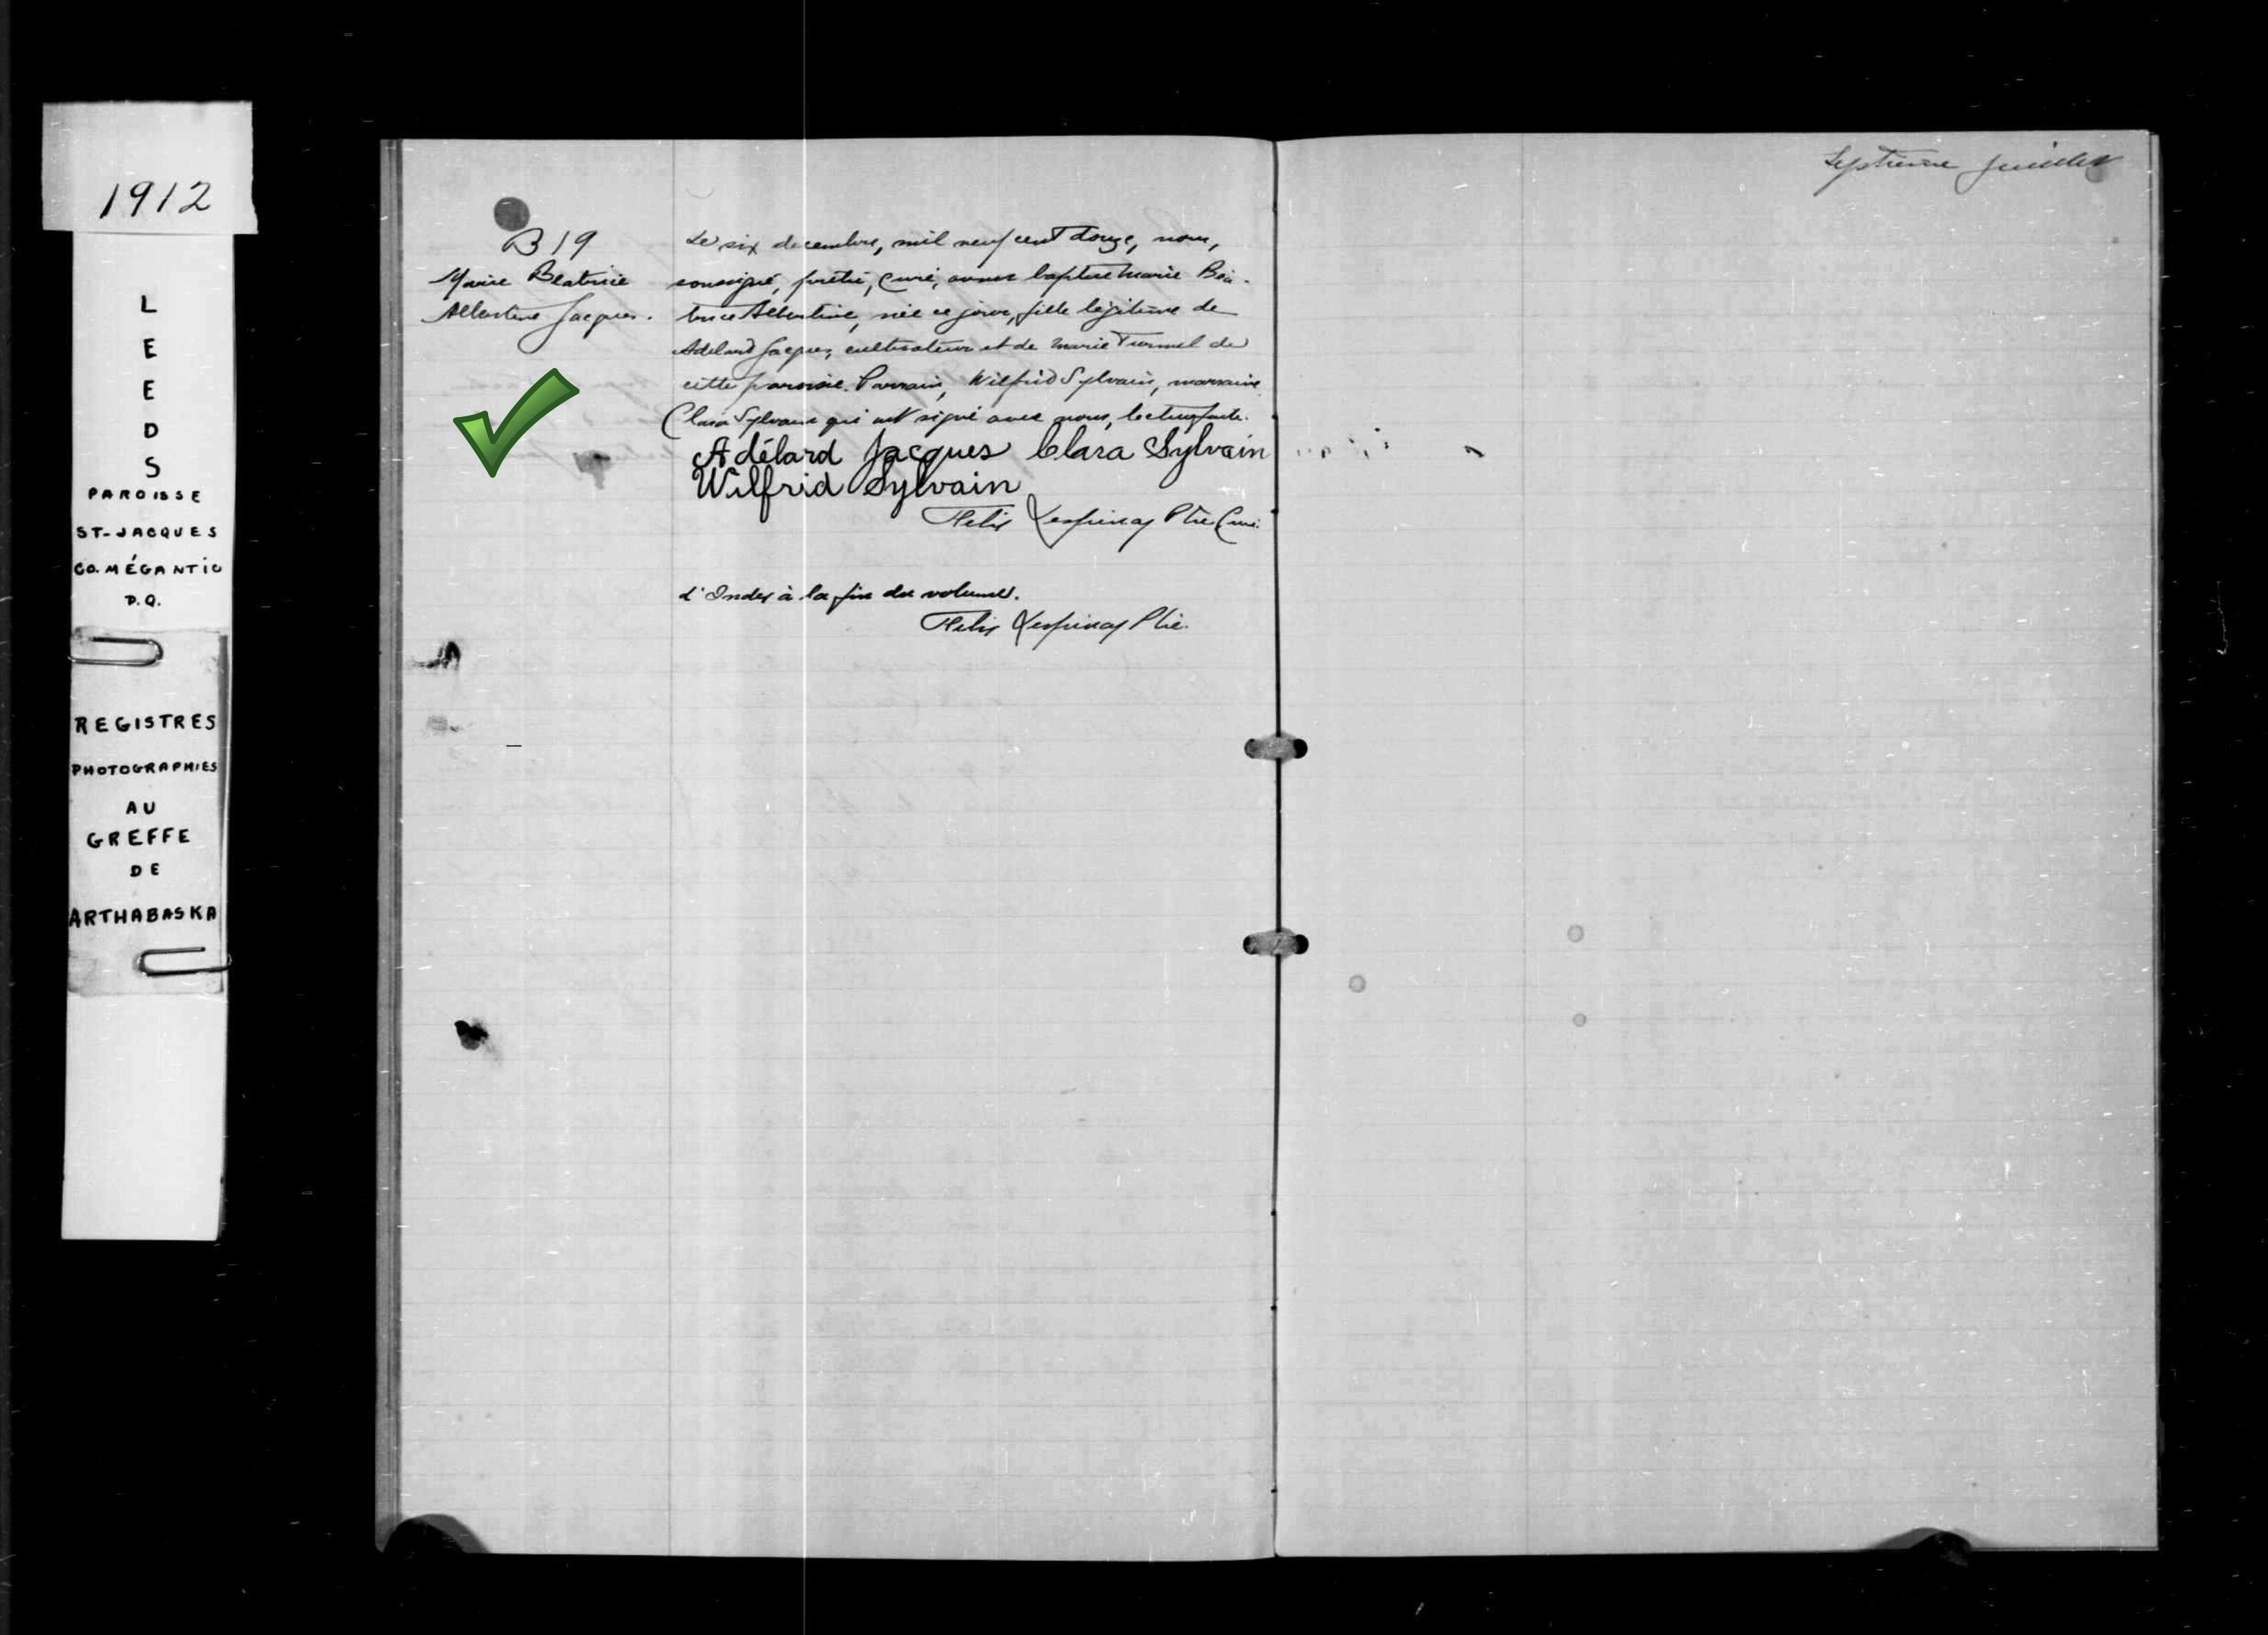 1912
L
E
E
D
S
PAROISSE
ST-JACQUES
CO. MÉGANTIC
P.Q.
REGISTRES
PHOTOGRAPHIES
AU
GREFFE
DE
ARTHABASKA
B 19
Marie Beatrice
Albertine Jacques.
Le six decembre, mil neuf cent douze, nous,
soussigné, prêtre, Curé, avons baptisé Marie Béa-
trice Albertine, née ce jour, fille légitime de
Adelard Jacques, cultivateur et de Marie Turmel de
cette paroisse. Parrain, Wilfrid Sylvain, marraine
Clara Sylvain qui ont signé avec nous, lecture faite.
Adélard Jacques Clara Sylvain
Wilfrid Sylvain
Felix Ptre Curé.
L'Index à la fin du volume.
Felix Ptre.
Septième feuillet